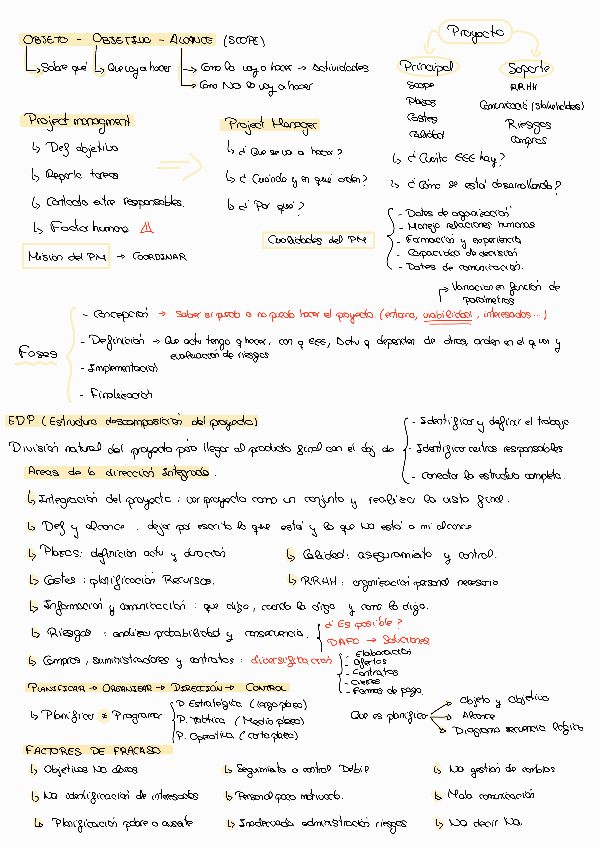 OBJETO - OBJETIVO - ALCANCE (SCOPE)
↳ Sobre qué ↳ Que voy a hacer ↳ Como lo voy a hacer → Actividades
↳ Como NO lo voy a hacer
Proyecto
Principal
Scope
Plazos
Costes
Calidad
Soporte
RRHH
Comunicació (stakeholders)
Riesgos
Compras
Project managment
↳ Def objetivo
↳ Reparto tareas
↳ Contacto entre responsables.
↳ Factor humano ⚠
Misión del PM → COORDINAR
Project Manager
↳ ¿Que se va a hacer?
↳ ¿Cuándo y en qué orden?
↳ ¿Por qué?
↳ ¿Cuánto EEE hay?
↳ ¿Cómo se está desarrollando?
Cualidades del PM
- Dotes de organización
- Manejo relaciones humanas
- Formación y experiencia
- Capacidad de decisión
- Dotes de comunicación.
Fases
↱ Variacion en función de
parámetros
- Concepción → Saber si puedo o no puedo hacer el proyecto. (entorno, viabilidad, interesados...)
- Definición → Que actu tengo q hacer, con q EEE, actu q dependen de otras, orden en el q van y
evaluación de riesgos
- Implementación
- Finalización
EDP (Estructura descomposición del proyecto)
División natural del proyecto para llegar al producto final con el obj de
- Identificar y definir el trabajo
- Identificar centros responsables
- Conectar la estructura completa.
Areas de la dirección Integrada.
↳ Integración del proyecto: ver proyecto como un conjunto y realizar la vista final.
↳ Def y alcance. dejar por escrito lo que está y lo que NO está a mi alcance
↳ Plazos: definición actu y duración
↳ Calidad: aseguramiento y control.
↳ Costes: planificación Recursos.
↳ RRHH: organización personal necesario
↳ Información y comunicación: que digo, cuando lo digo y como lo digo.
↳ Riesgos: analizar probabilidad y consecuencia.
¿Es posible?
DAFO → Soluciones
↳ Compras, suministradores y contratos: diversificación
- Elaboración
- Ofertas
- Contratos
- Cierres
- Formas de pago.
PLANIFICAR → ORGANIZAR → DIRECCIÓN → CONTROL
↳ Planificar ≠ Programar
P. Estratégica (largo plazo)
P. Táctica (Medio plazo)
P. Operativa (corto plazo)
Que es planificar
Objeto y Objetivo
Alcance
Diagrama secuencia lógica
FACTORES DE FRACASO
↳ Objetivos No claros
↳ Seguimiento o control Debil
↳ No gestión de cambios
↳ No identificación de interesados
↳ Personal poco motivado.
↳ Mala comunicación
↳ Planificación pobre o ausente
↳ Inadecuada administración riesgos
↳ No decir No.